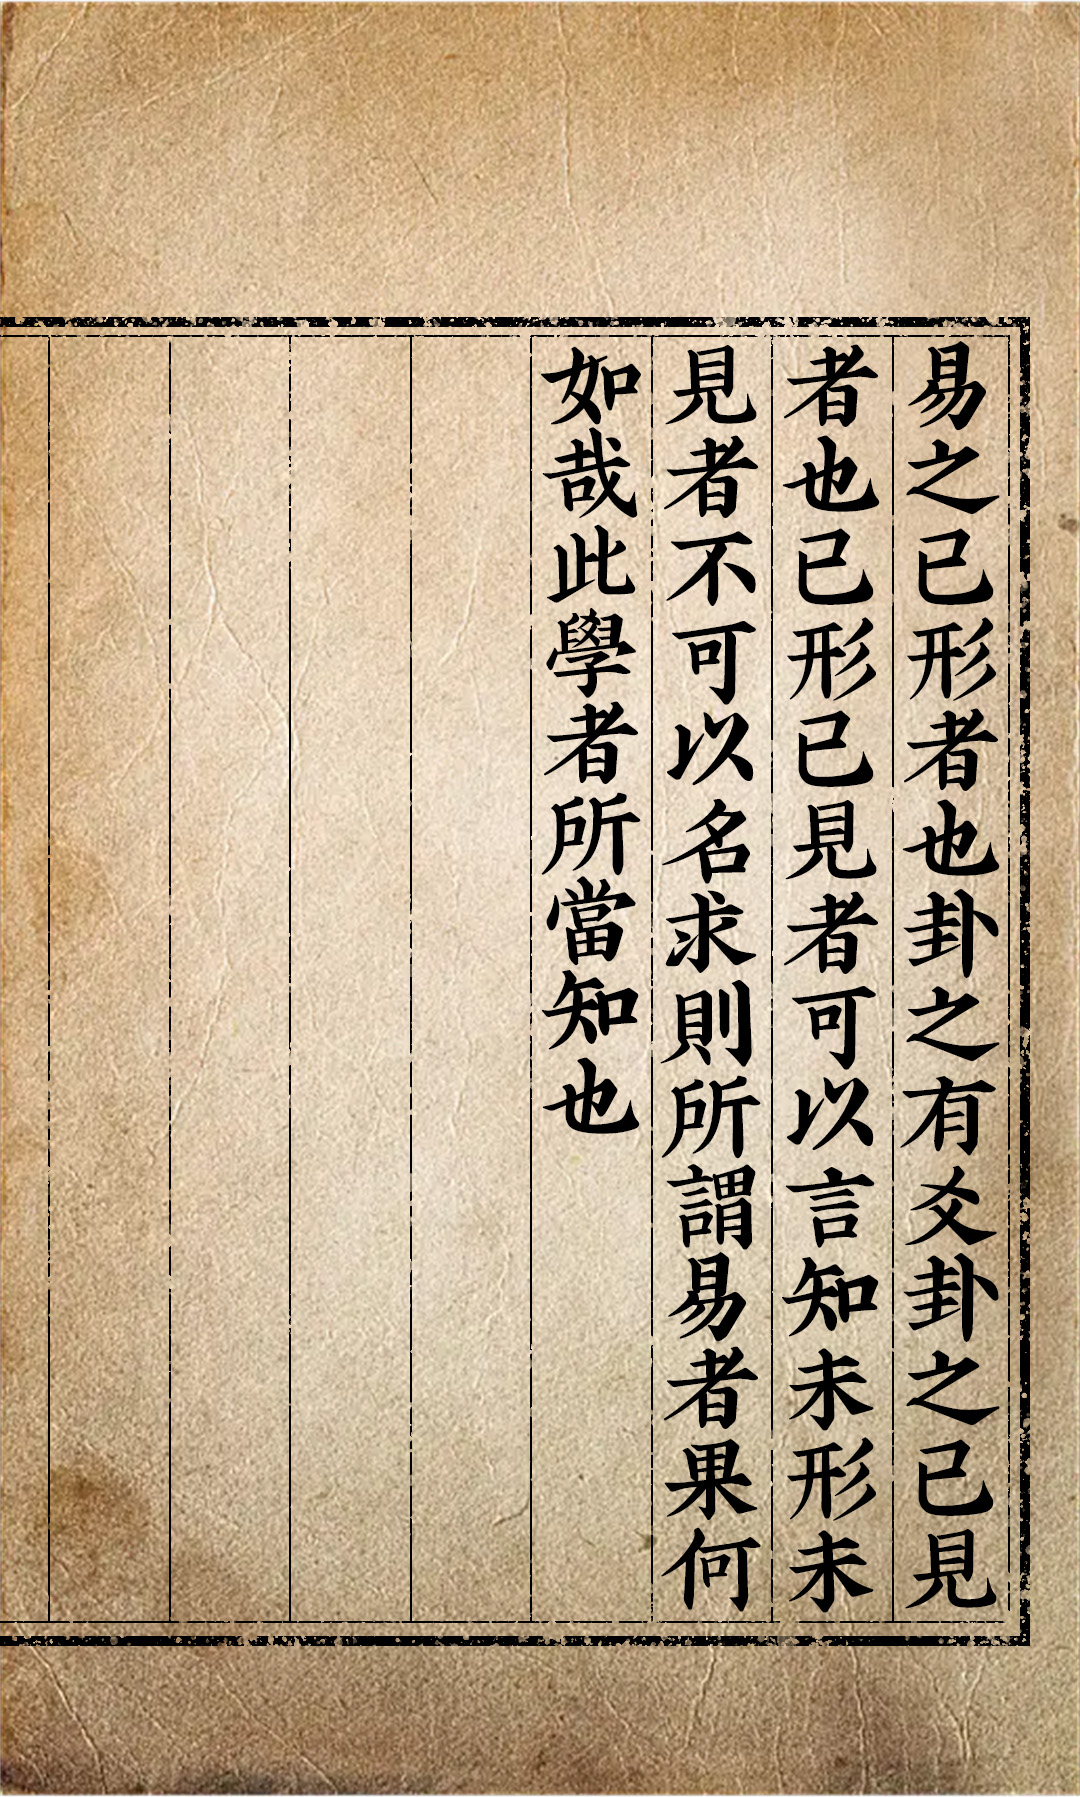 易之已形者也卦之有爻卦之已見
者也已形已見者可以言知未形未
見者不可以名求則所謂易者果何
如哉此學者所當知也